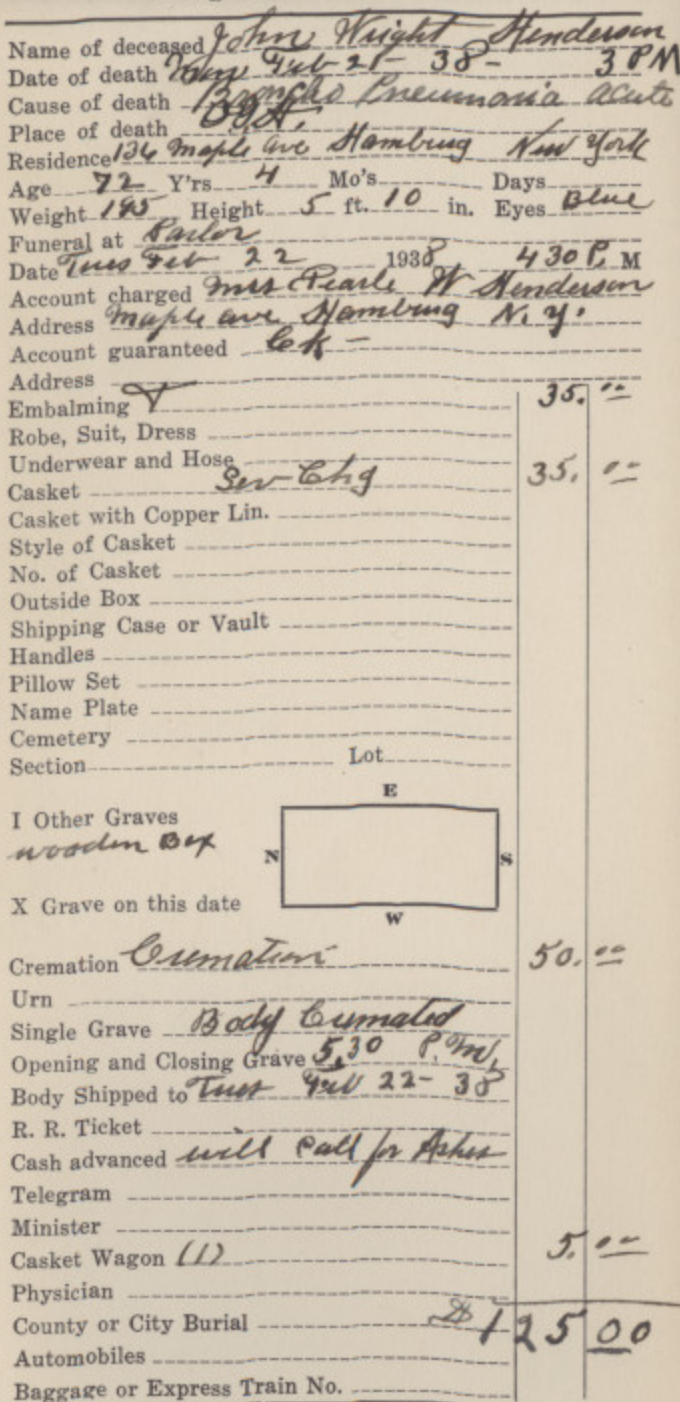 Name of deceased John Wright Henderson
Date of death Mon Feb 21 - 38 - 3 PM
Cause of death Broncho Pneumonia acute
Place of death
Residence 136 Maple ave Hamburg New York
Age 72 Y'rs 4 Mo's Days
Weight 195 Height 5 ft. 10 in. Eyes Blue
Funeral at Parlor
Date Tues Feb 22 1938 4 30 P. M
Account charged Mrs Pearle W Henderson
Address Maple ave Hamburg N. Y.
Account guaranteed Ck -
Address
Embalming 35. 00
Robe, Suit, Dress
Underwear and Hose
Casket Ser Chg 35. 00
Casket with Copper Lin.
Style of Casket
No. of Casket
Outside Box
Shipping Case or Vault
Handles
Pillow Set
Name Plate
Cemetery
Section Lot
E
I Other Graves
wooden Box
N S
X Grave on this date
W
Cremation Cremation 50. 00
Urn
Single Grave Body Cremated
Opening and Closing Grave 5,30 P. M.
Body Shipped to Tues Feb 22 - 38
R. R. Ticket
Cash advanced will call for Ashes
Telegram
Minister
Casket Wagon (1) 5. 00
Physician
County or City Burial $125 00
Automobiles
Baggage or Express Train No.